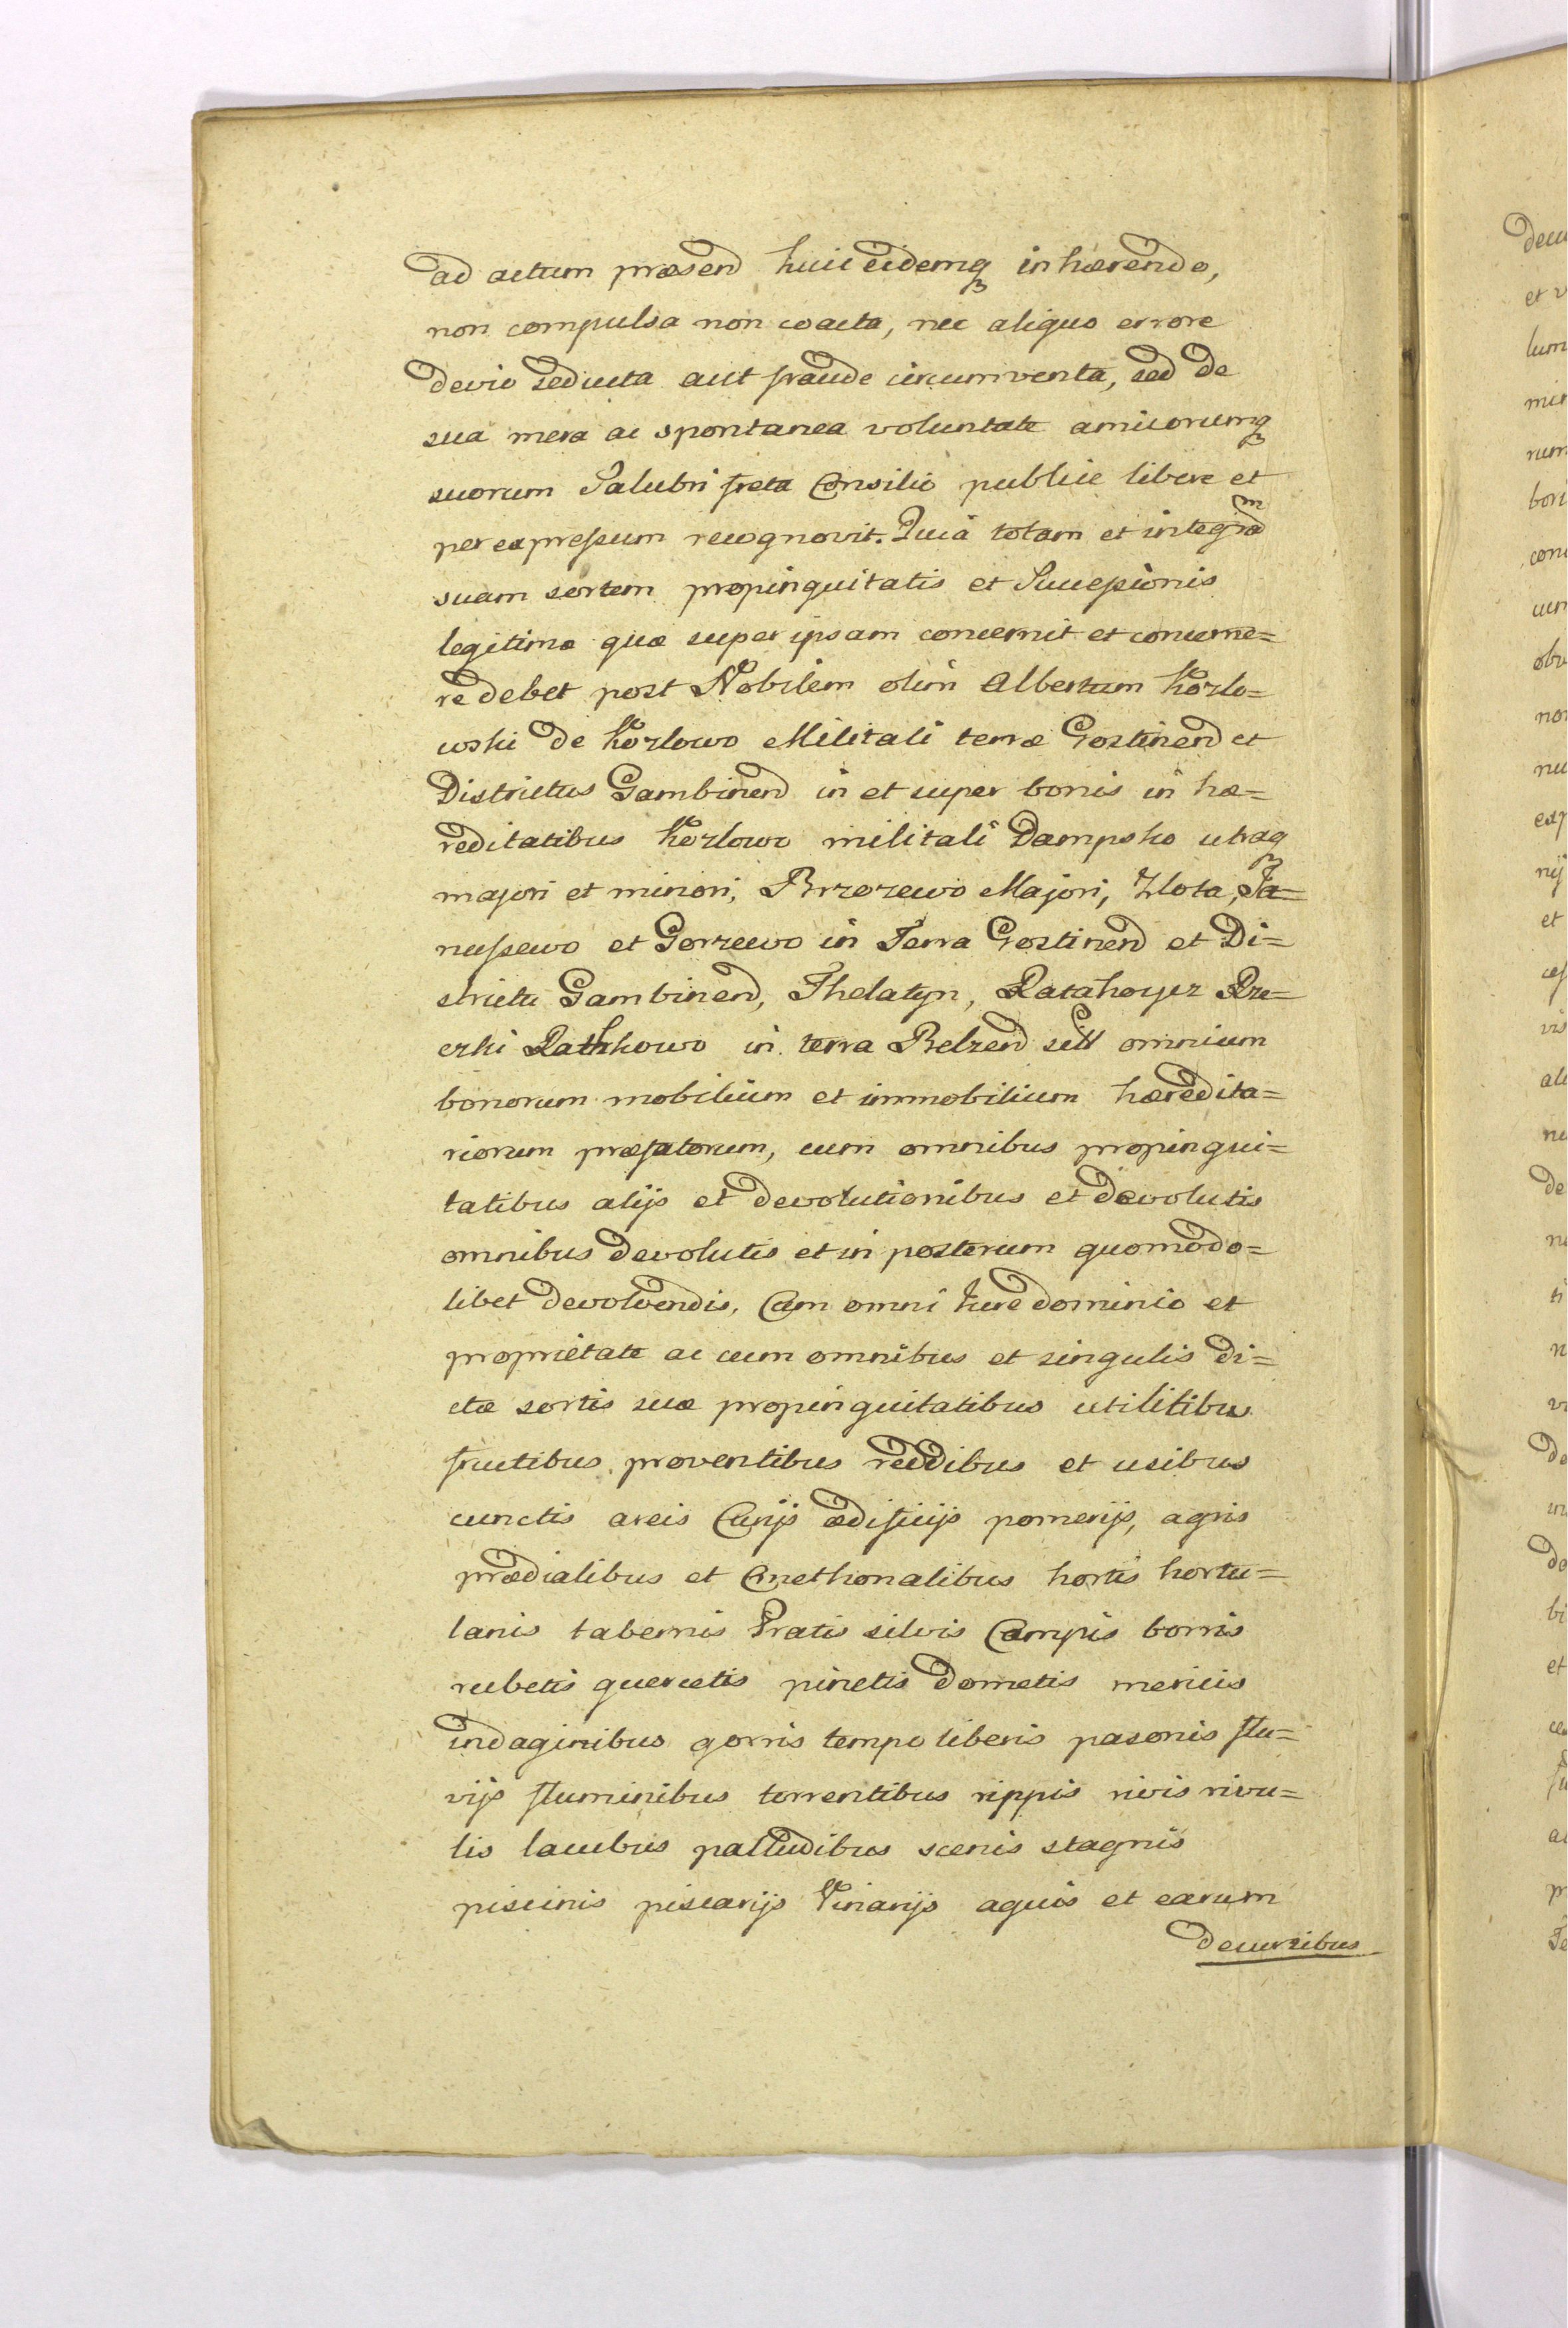 ad actum præsend huic eidemq inhærendo,
non compulsa non coacta, nec aliquo errore
devio seducta aut fraude circumventa, sed de
sua mera ac spontanea voluntate amicorumq
suorum Salubri freta Consilio publice libere et
per expressum recognovit. Quia totam et integram
suam sortem propinquitatis et Successionis
legitimæ quæ super ipsam concernit et concerne=
re debet post Nobilem olim Albertum Kozlo=
wski de Kozlowo Militali terræ Gostinend et
Districtus Gambinend in et super bonis in hæ=
reditatibus Kozlowo militali Dampsko utraq
majori et minori, Brzozewo Majori, Zlota, Ja=
nussewo et Gorzewo in Terra Gostinend et Di=
strictu Gambinend, Thelatyn, Ratahoyez Rze=
czki Rathkowo in terra Belzend sell omnium
bonorum mobilium et immobilium hæredita=
riorum præfatorum, cum omnibus propinqui=
tatibus alijs et devolutionibus et devolutis
omnibus devolutis et in posterum quomodo=
libet devolvendis, Cum omni Jure dominio et
proprietate ac cum omnibus et singulis di=
ctæ sortis suæ propinquitatibus utilitibus
fructibus proventibus reddibus et usibus
cunctis areis Curijs ædificijs pomerijs, agris
prædialibus et Cmethonalibus hortis hortu=
lanis tabernis Pratis silvis Campis borris
rubetis quercetis pinetis dometis mericis
indaginibus gorris tempo liberis pasonis flu=
vijs fluminibus torrentibus rippis rivis rivu=
lis lacubus palludibus scenis stagnis
piscinis piscarijs Vinarijs aquis et earum
decursibus